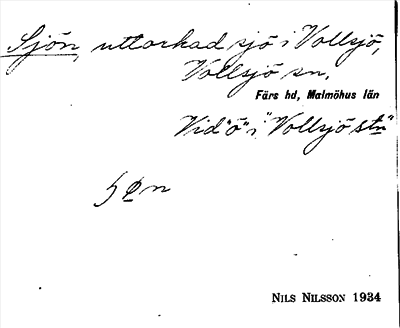 Sjön, uttorkad sjö i Vollsjö,
Vollsjö sn.
Färs hd, Malmöhus län
Vid "ö" i "Vollsjö stn"
NILS NILSSON 1934